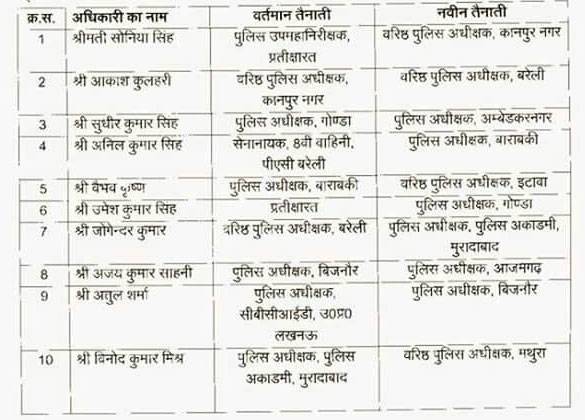 क्र.स. अधिकारी का नाम वर्तमान तैनाती नवीन तैनाती
1 श्रीमती सोनिया सिंह पुलिस उपमहानिरीक्षक, वरिष्ठ पुलिस अधीक्षक, कानपुर नगर
प्रतीक्षारत
2 श्री आकाश कुलहरी वरिष्ठ पुलिस अधीक्षक, वरिष्ठ पुलिस अधीक्षक, बरेली
कानपुर नगर
3 श्री सुधीर कुमार सिंह पुलिस अधीक्षक, गोण्डा पुलिस अधीक्षक, अम्बेडकरनगर
4 श्री अनिल कुमार सिंह सेनानायक, 8वी वाहिनी, पुलिस अधीक्षक, बाराबकी
पीएसी बरेली
5 श्री वैभव कृष्ण पुलिस अधीक्षक, बाराबकी वरिष्ठ पुलिस अधीक्षक, इटावा
6 श्री उमेश कुमार सिंह प्रतीक्षारत पुलिस अधीक्षक, गोण्डा
7 श्री जोगेन्दर कुमार वरिष्ठ पुलिस अधीक्षक, बरेली पुलिस अधीक्षक, पुलिस अकाडमी,
मुरादाबाद
8 श्री अजय कुमार साहनी पुलिस अधीक्षक, बिजनौर पुलिस अधीक्षक, आजमगढ़
9 श्री अतुल शर्मा पुलिस अधीक्षक, पुलिस अधीक्षक, बिजनौर
सीबीसीआईडी, उ0प्र0
लखनऊ
10 श्री विनोद कुमार मिश्र पुलिस अधीक्षक, पुलिस वरिष्ठ पुलिस अधीक्षक, मथुरा
अकाडमी, मुरादाबाद